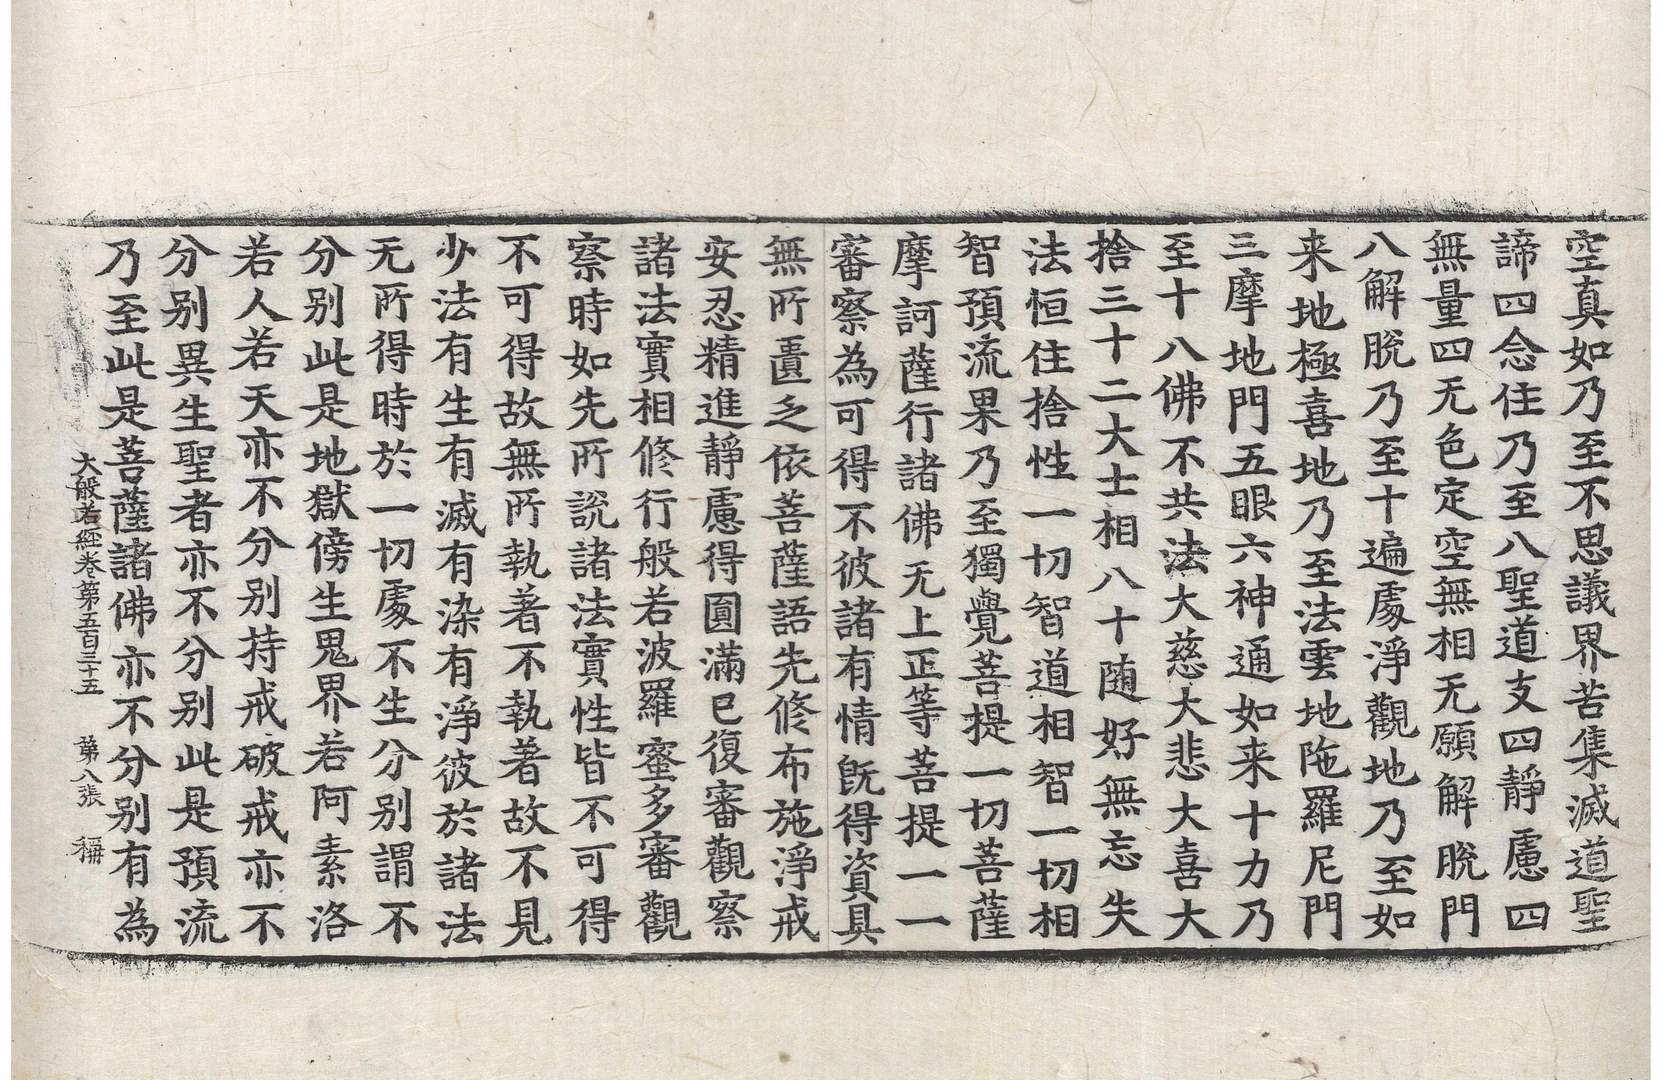 空真如乃至不思議界苦集滅道聖
諦四念住乃至八聖道支四靜慮四
無量四无色定空無相无願解脫門
八解脫乃至十遍處淨觀地乃至如
来地極喜地乃至法雲地陁羅尼門
三摩地門五眼六神通如来十力乃
至十八佛不共法大慈大悲大喜大
捨三十二大士相八十随好無忘失
法恒住捨性一切智道相智一切相
智預流果乃至獨覺菩提一切菩薩
摩訶薩行諸佛无上正等菩提一一
審察為可得不彼諸有情旣得資具
無所匱乏依菩薩語先修布施淨戒
安忍精進靜慮得圓滿已復審觀察
諸法實相修行般若波羅蜜多審觀
察時如先所說諸法實性皆不可得
不可得故無所執著不執著故不見
少法有生有滅有染有淨彼於諸法
无所得時於一切處不生分别謂不
分别此是地獄傍生鬼界若阿素洛
若人若天亦不分别持戒破戒亦不
分别異生聖者亦不分别此是預流
乃至此是菩薩諸佛亦不分别有為
大般若經卷第五百三十五 第八張 稱